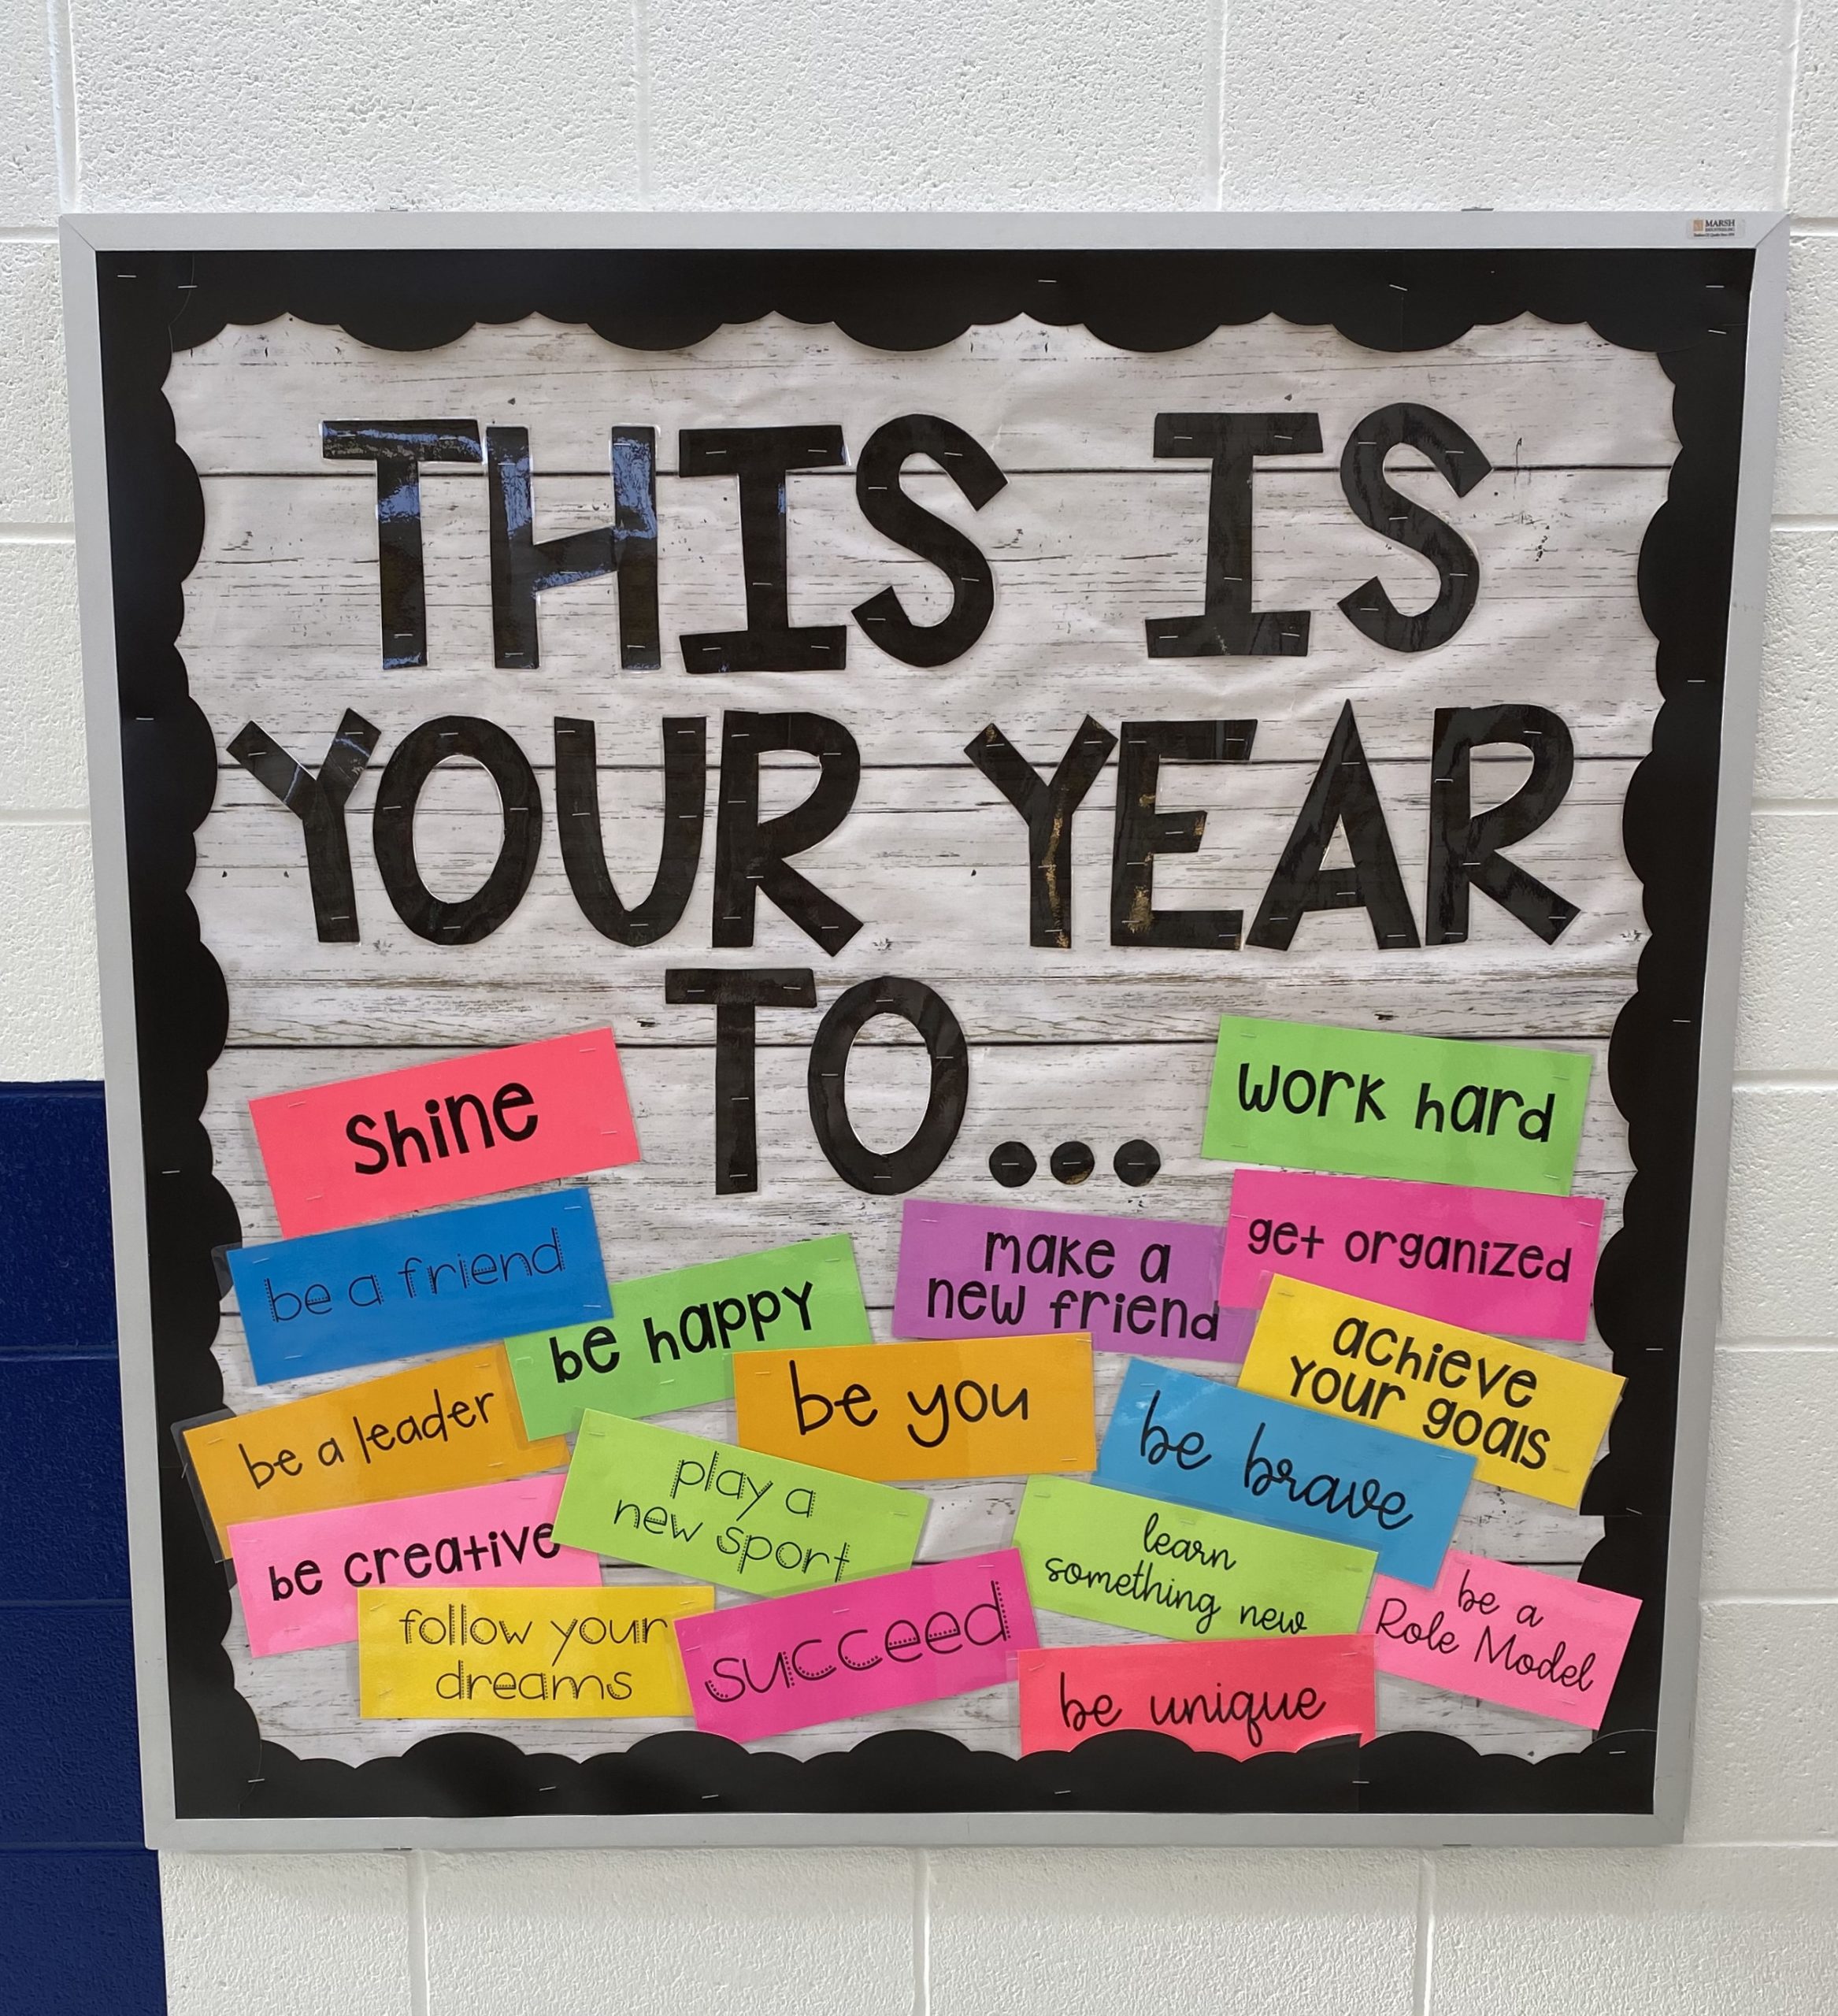 MARSH
THIS IS
YOUR YEAR
TO...
Shine
work hard
be a friend
be happy
make a
new friend
get organized
achieve
your goals
be a leader
be you
be brave
play a
new sport
be creative
learn
something new
be a
Role Model
follow your
dreams
succeed
be unique